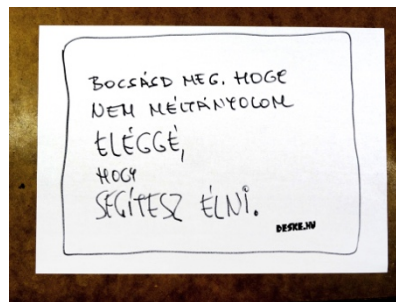 BOCSÁSD MEG, HOGY
NEM MÉLTÁNYOLOM
ELÉGGÉ,
HOGY
SEGÍTESZ ÉLNI.
DESKE.HU